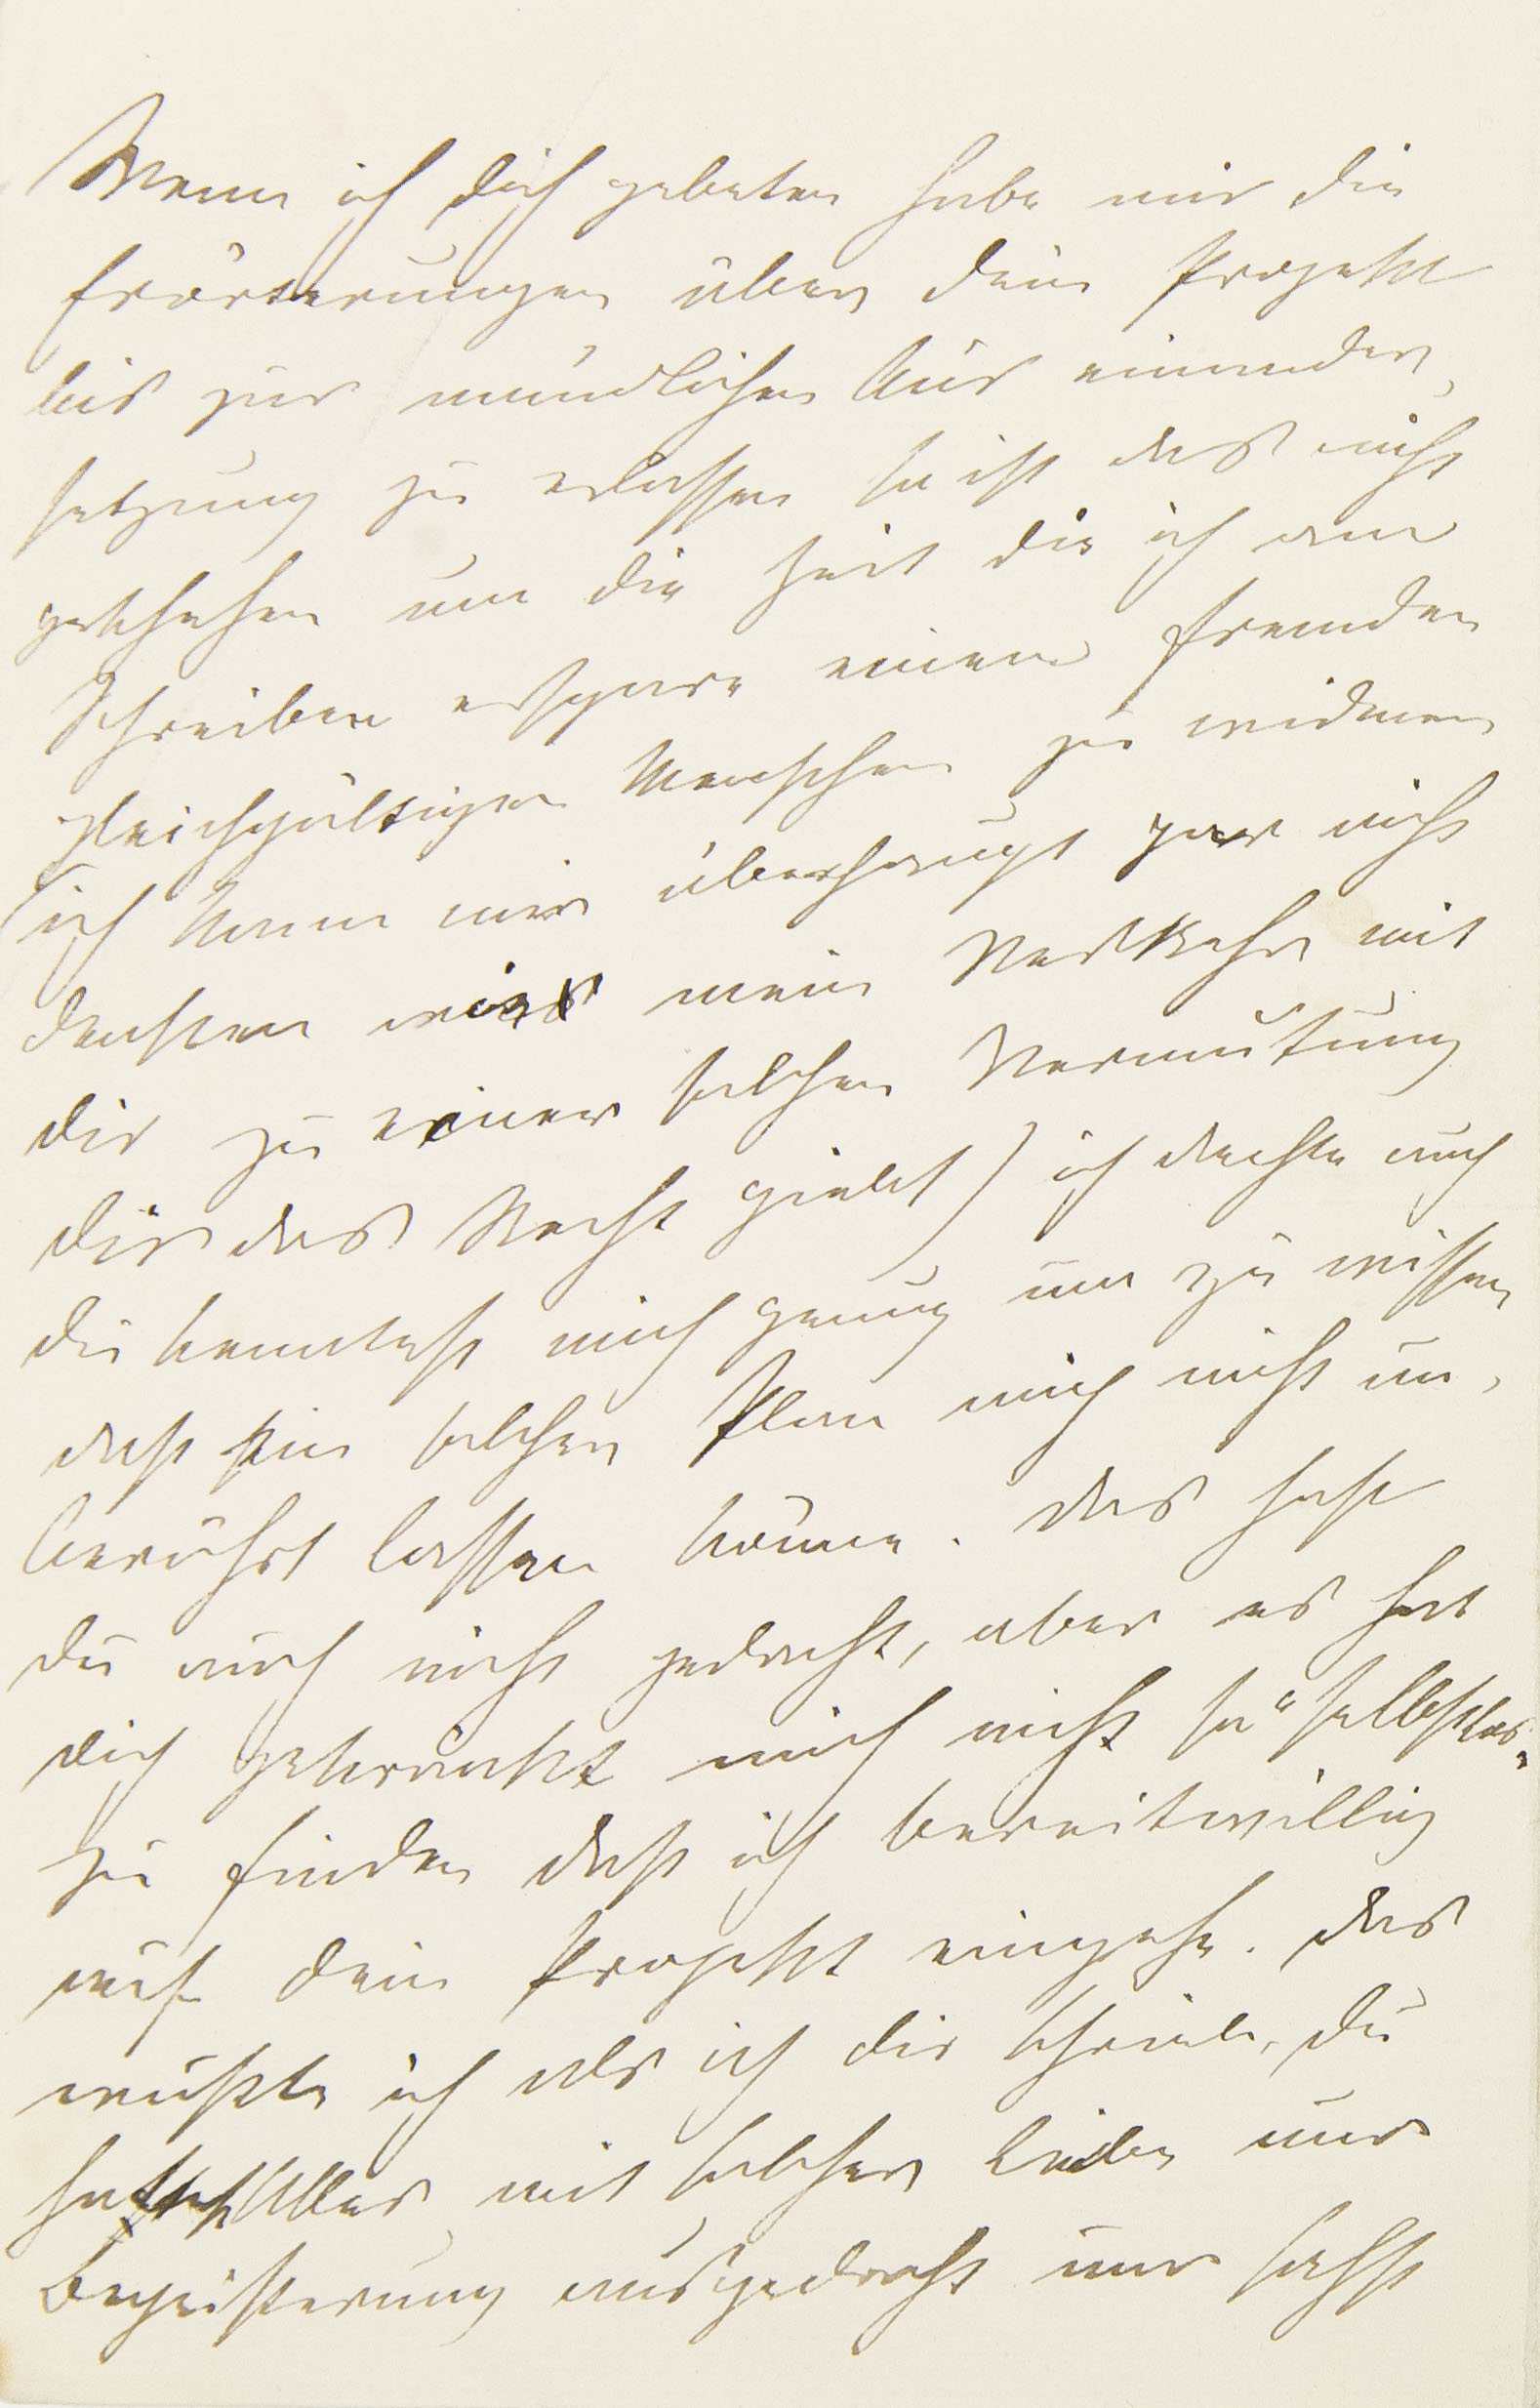 Wenn ich dich gebeten habe mir die
Erörterungen über dein Projekt
bis zur mündlichen Aus einander,
setzung zu erlassen so ist das nicht
geschehen um die Zeit die ich am
Schreiben erspare einem fremden
gleichgültigen Menschen zu widmen
(ich kann mir überhaupt gar nicht
denken was mein Verkehr mit
dir zu einer solchen Vermutung
dir das Recht giebt) ich dachte auch
du kenntest mich genug um zu wissen
daß ein solcher Plan mich nicht un,
berührt lassen könne. Das hast
du auch nicht gedacht, aber es hat
dich gekränkt mich nicht so "selbstlos"
zu finden daß ich bereitwillig
auf dein Projekt eingehe. Das
wußte ich als ich dir schrieb, du
hattest Alles mit solcher Liebe und
Begeisterung ausgedacht und sahst